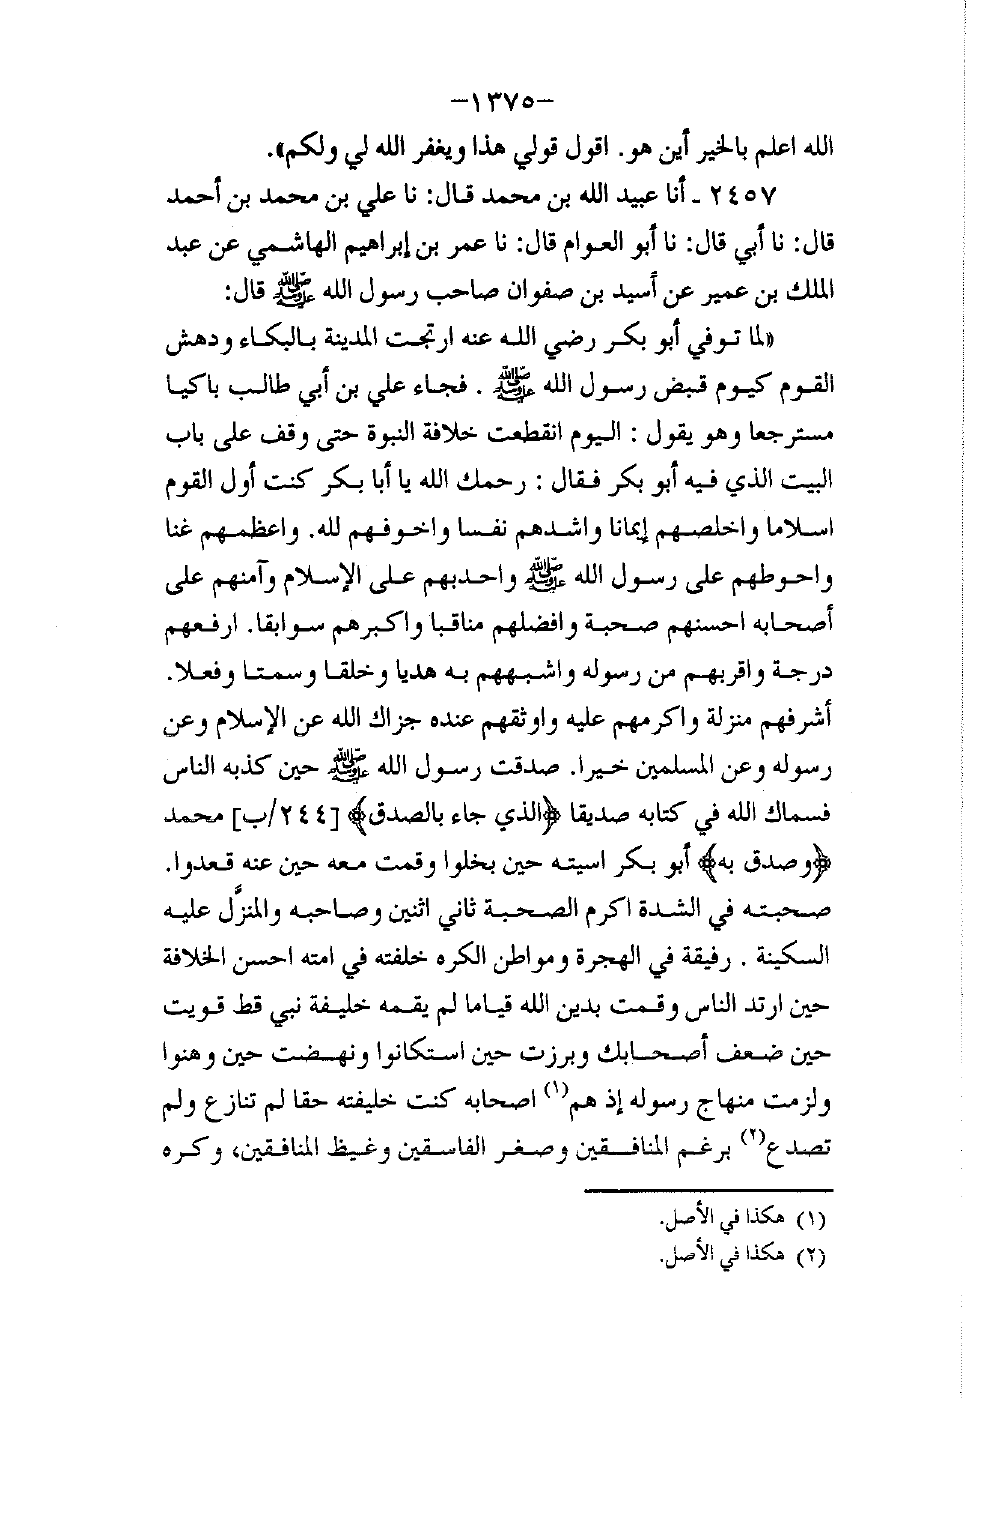 -١٣٧٥-
الله اعلم بالخير أين هو. اقول قولي هذا ويغفر الله لي ولكم».
٢٤٥٧ ـ أنا عبيد الله بن محمد قال: نا علي بن محمد بن أحمد
قال: نا أبي قال: نا أبو العوام قال: نا عمر بن إبراهيم الهاشمي عن عبد
الملك بن عمير عن أسيد بن صفوان صاحب رسول الله ﷺ قال:
«لما توفي أبو بكر رضي الله عنه ارتجت المدينة بالبكاء ودهش
القوم كيوم قبض رسول الله ﷺ . فجاء علي بن أبي طالب باكيا
مسترجعا وهو يقول : اليوم انقطعت خلافة النبوة حتى وقف على باب
البيت الذي فيه أبو بكر فقال : رحمك الله يا أبا بكر كنت أول القوم
اسلاما واخلصهم إيمانا واشدهم نفسا واخوفهم لله. واعظمهم غنا
واحوطهم على رسول الله ﷺ واحدبهم على الإسلام وآمنهم على
أصحابه احسنهم صحبة وافضلهم مناقبا واكبرهم سوابقا. ارفعهم
درجة واقربهم من رسوله واشبههم به هديا وخلقا وسمتا وفعلا.
أشرفهم منزلة واكرمهم عليه واوثقهم عنده جزاك الله عن الإسلام وعن
رسوله وعن المسلمين خيرا. صدقت رسول الله ﷺ حين كذبه الناس
فسماك الله في كتابه صديقا ﴿الذي جاء بالصدق﴾ [٢٤٤/ب] محمد
﴿وصدق به﴾ أبو بكر اسيته حين بخلوا وقمت معه حين عنه قعدوا.
صحبته في الشدة اكرم الصحبة ثاني اثنين وصاحبه والمنزَّل عليه
السكينة . رفيقة في الهجرة ومواطن الكره خلفته في امته احسن الخلافة
حين ارتد الناس وقمت بدين الله قياما لم يقمه خليفة نبي قط قويت
حين ضعف أصحابك وبرزت حين استكانوا ونهضت حين وهنوا
ولزمت منهاج رسوله إذ هم(١) اصحابه كنت خليفته حقا لم تنازع ولم
تصدع(٢) برغم المنافقين وصغر الفاسقين وغيظ المنافقين، وكره
(١) هكذا في الأصل.
(٢) هكذا في الأصل.